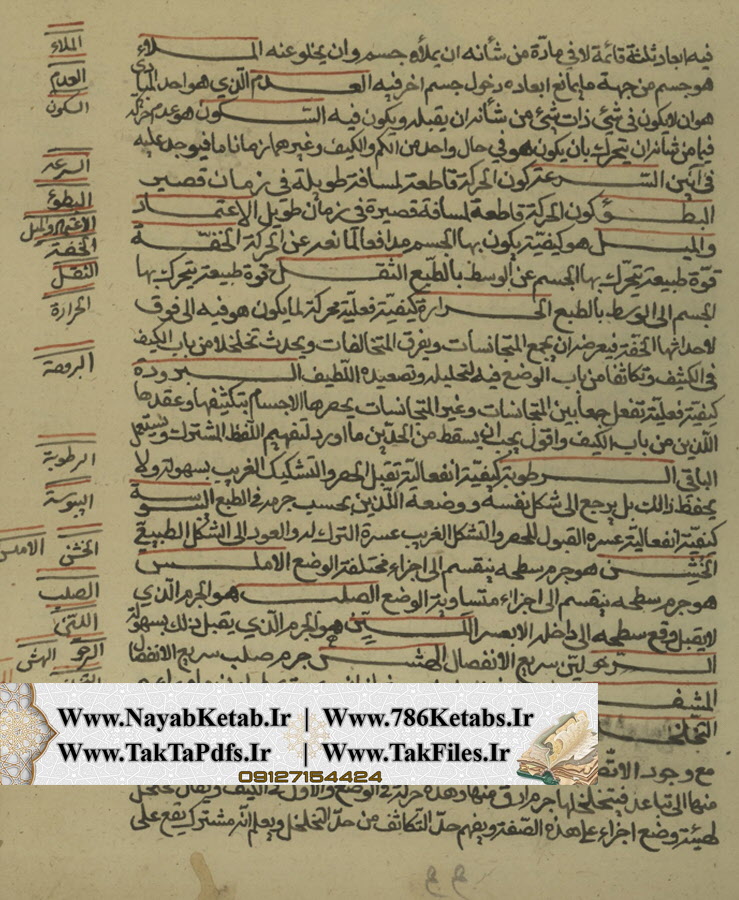 فيه ابعاد ثلثة قائمة لا في مادة من شأنه ان يملأه جسم وان يخلو عنه الملاء
هو جسم من جهة ما يمانع ابعاده دخول جسم اخر فيه العدم الذي هو احد المبادي
هو ان لا يكون في شئ ذات شئ من شأنه ان يقبله ويكون فيه السكون هو عدم حركة
فيما من شأنه ان يتحرك بان يكون هو في حال واحد من الكم والكيف وغيرهما زمانا ما فيوجد عليه
في آنين السرعة كون الحركة قاطعة لمسافة طويلة في زمان قصير
البطؤ كون الحركة قاطعة لمسافة قصيرة في زمان طويل الاعتماد
والميل هو كيفية يكون بها الجسم مدافعا لما يمنعه عن الحركة الخفة
قوة طبيعية يتحرك بها الجسم عن الوسط بالطبع الثقل قوة طبيعية يتحرك بها
الجسم الى الوسط بالطبع الحرارة كيفية فعلية محركة لما يكون هو فيه الى فوق
لاحداثها الخفة فيعرض ان يجمع المتجانسات ويفرق المتخالفات ويحدث تخلخلا من باب الكيف
في الكثيف وتكاثفا من باب الوضع فيه لتحليله وتصعيده اللطيف البرودة
كيفية فعلية تفعل جمعا بين المتجانسات وغير المتجانسات بحصرها الاجسام بتكثيفها وعقدها
اللذين من باب الكيف واقول يجب ان يسقط من الحدين ما اورد لتفهيم اللفظ المشترك ويستعمل
الباقي الرطوبة كيفية انفعالية تقبل الحصر والتشكيل الغريب بسهولة ولا
يحفظ ذالك بل يرجع الى شكل نفسه ووضعه اللذين بحسب جرمه في الطبع اليبوسة
كيفية انفعالية عسرة القبول للحصر والتشكل الغريب عسرة الترك له والعود الى الشكل الطبيعي
الخشن هو جرم سطحه ينقسم الى اجزاء مختلفة الوضع الاملس
هو جرم سطحه ينقسم الى اجزاء متساوية الوضع الصلب هو الجرم الذي
لا يقبل دفع سطحه الى داخله الا بعسر اللين هو الجرم الذي يقبل ذلك بسهولة
الرخو لين سريع الانفصال الهش جرم صلب سريع الانفصال
المشف
التخلخل
مع وجود
منها الى تباعد فيتخلخلها جرم ارق منها وهذه حركة في الوضع والاول في الكيف ويقال تخلخل
لهيئة وضع اجزاء على هذه الصفة ويفهم حد التكاثف من حد التخلخل ويعلم انه مشترك يقع على
الملاء
العدم
السكون
السرعة
البطؤ
الاعتماد والميل
الخفة
الثقل
الحرارة
البرودة
الرطوبة
اليبوسة
الخشن الاملس
الصلب
اللين
الرخو الهش
Www.NayabKetab.Ir | Www.786Ketabs.Ir
Www.TakTaPdfs.Ir | Www.TakFiles.Ir
09127154424